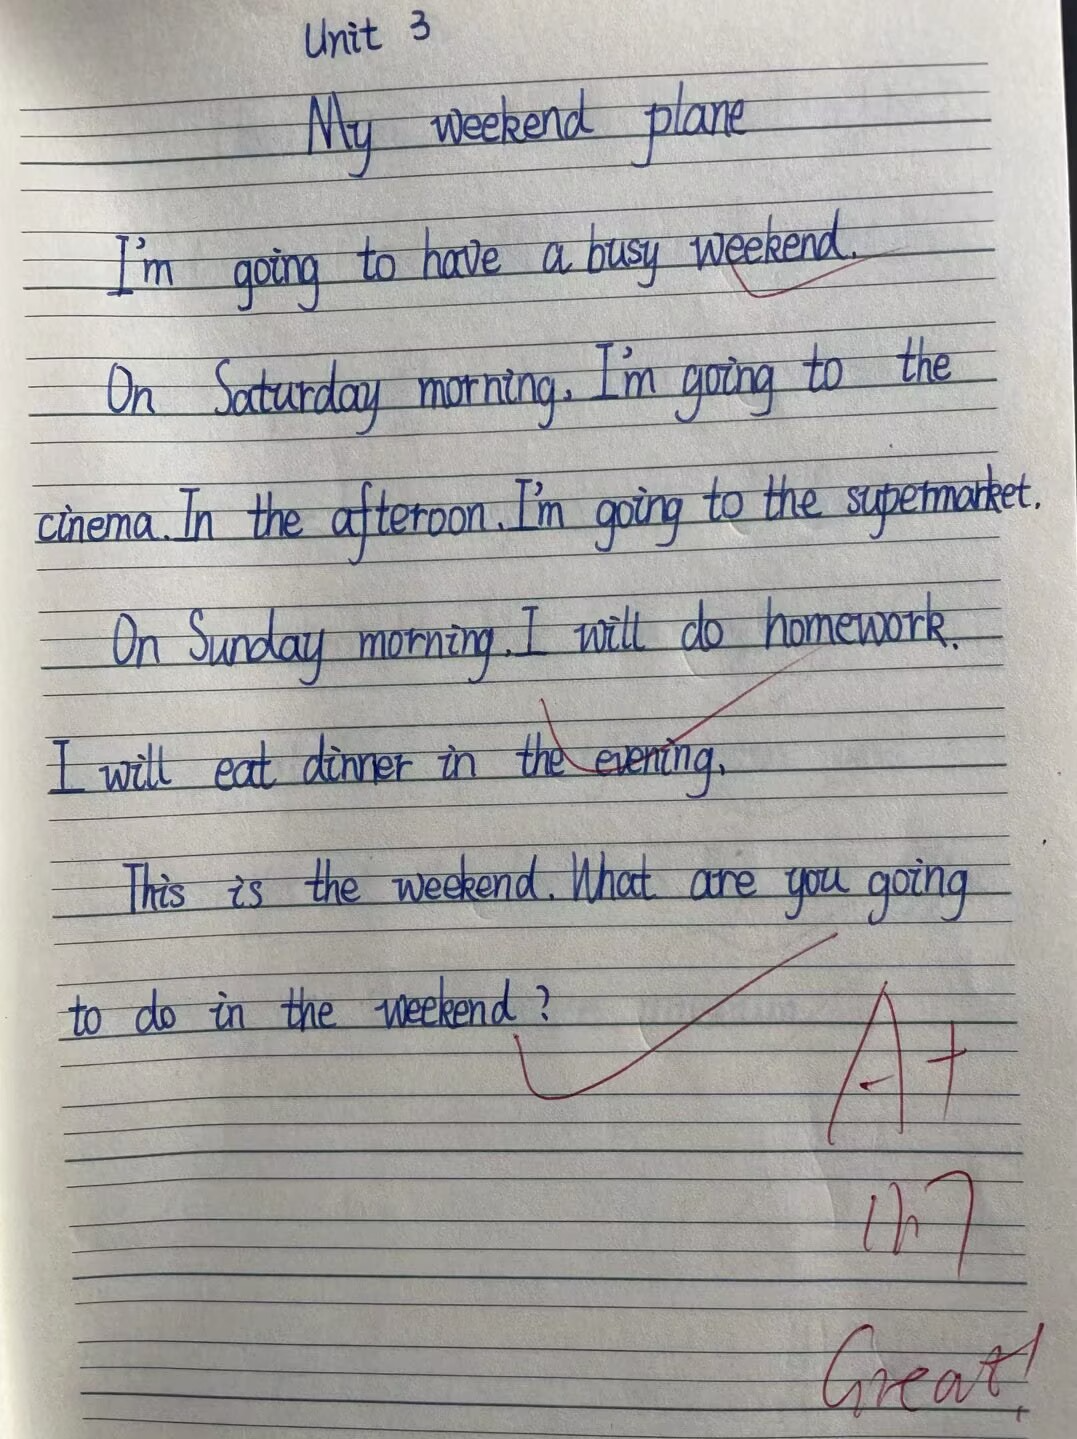 Unit 3
My weekend plane
I'm going to have a busy weekend.
On Saturday morning, I'm going to the
cinema. In the afteroon. I'm going to the supermarket.
On Sunday morning, I will do homework.
I will eat dinner in the evening.
This is the weekend. What are you going
to do in the weekend?
A+
Great!